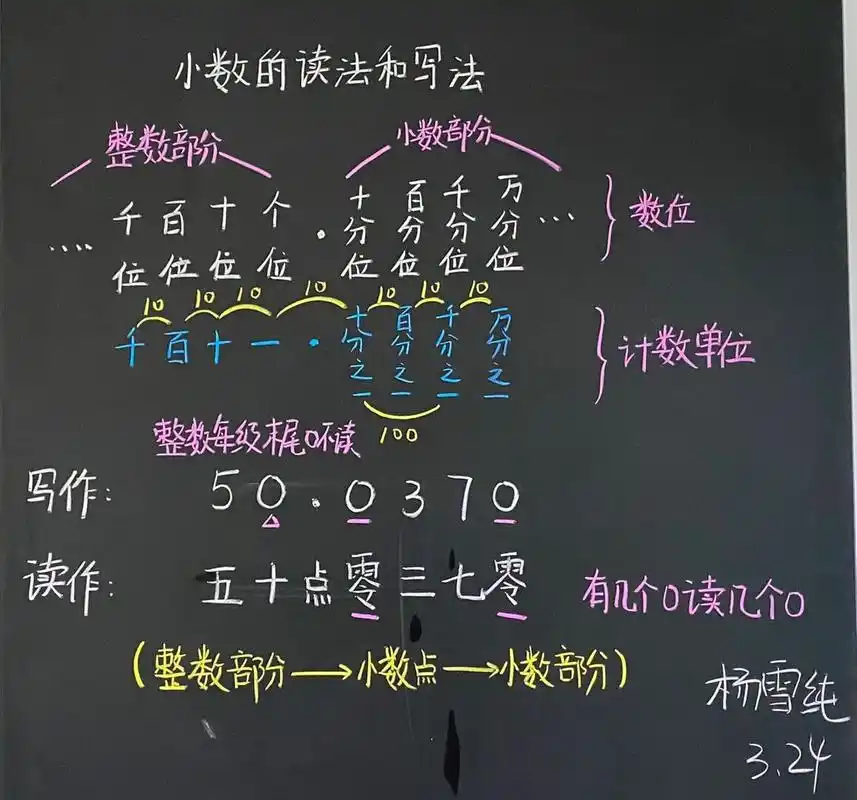 小数的读法和写法
整数部分 小数部分
…. 千位 百位 十位 个位 . 十分位 百分位 千分位 万分位 … 数位
10 10 10 10 10 10 10
千 百 十 一 . 十分之一 百分之一 千分之一 万分之一 计数单位
100
整数每级末尾0不读
写作: 50.0370
读作: 五十点零三七零 有几个0读几个0
(整数部分→小数点→小数部分)
杨雪纯
3.24